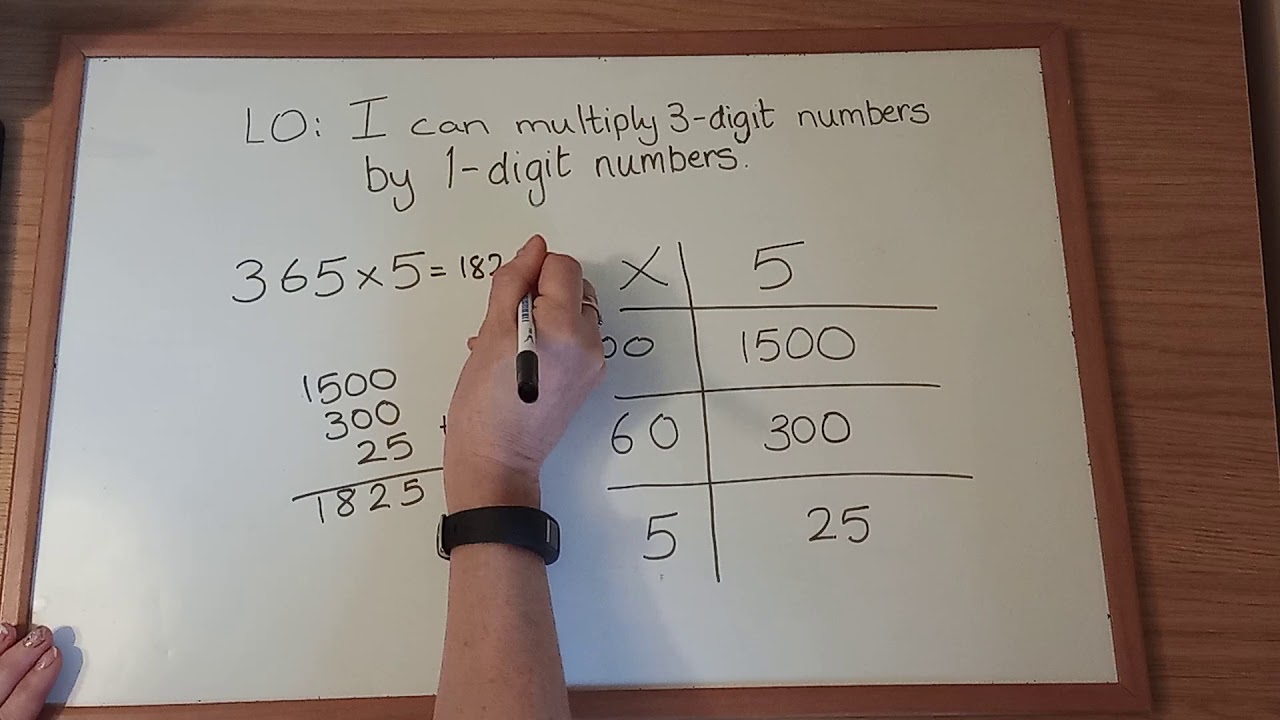 LO: I can multiply 3-digit numbers
by 1-digit numbers.
365×5=182
1500
300
25
1825
× 5
00 1500
60 300
5 25